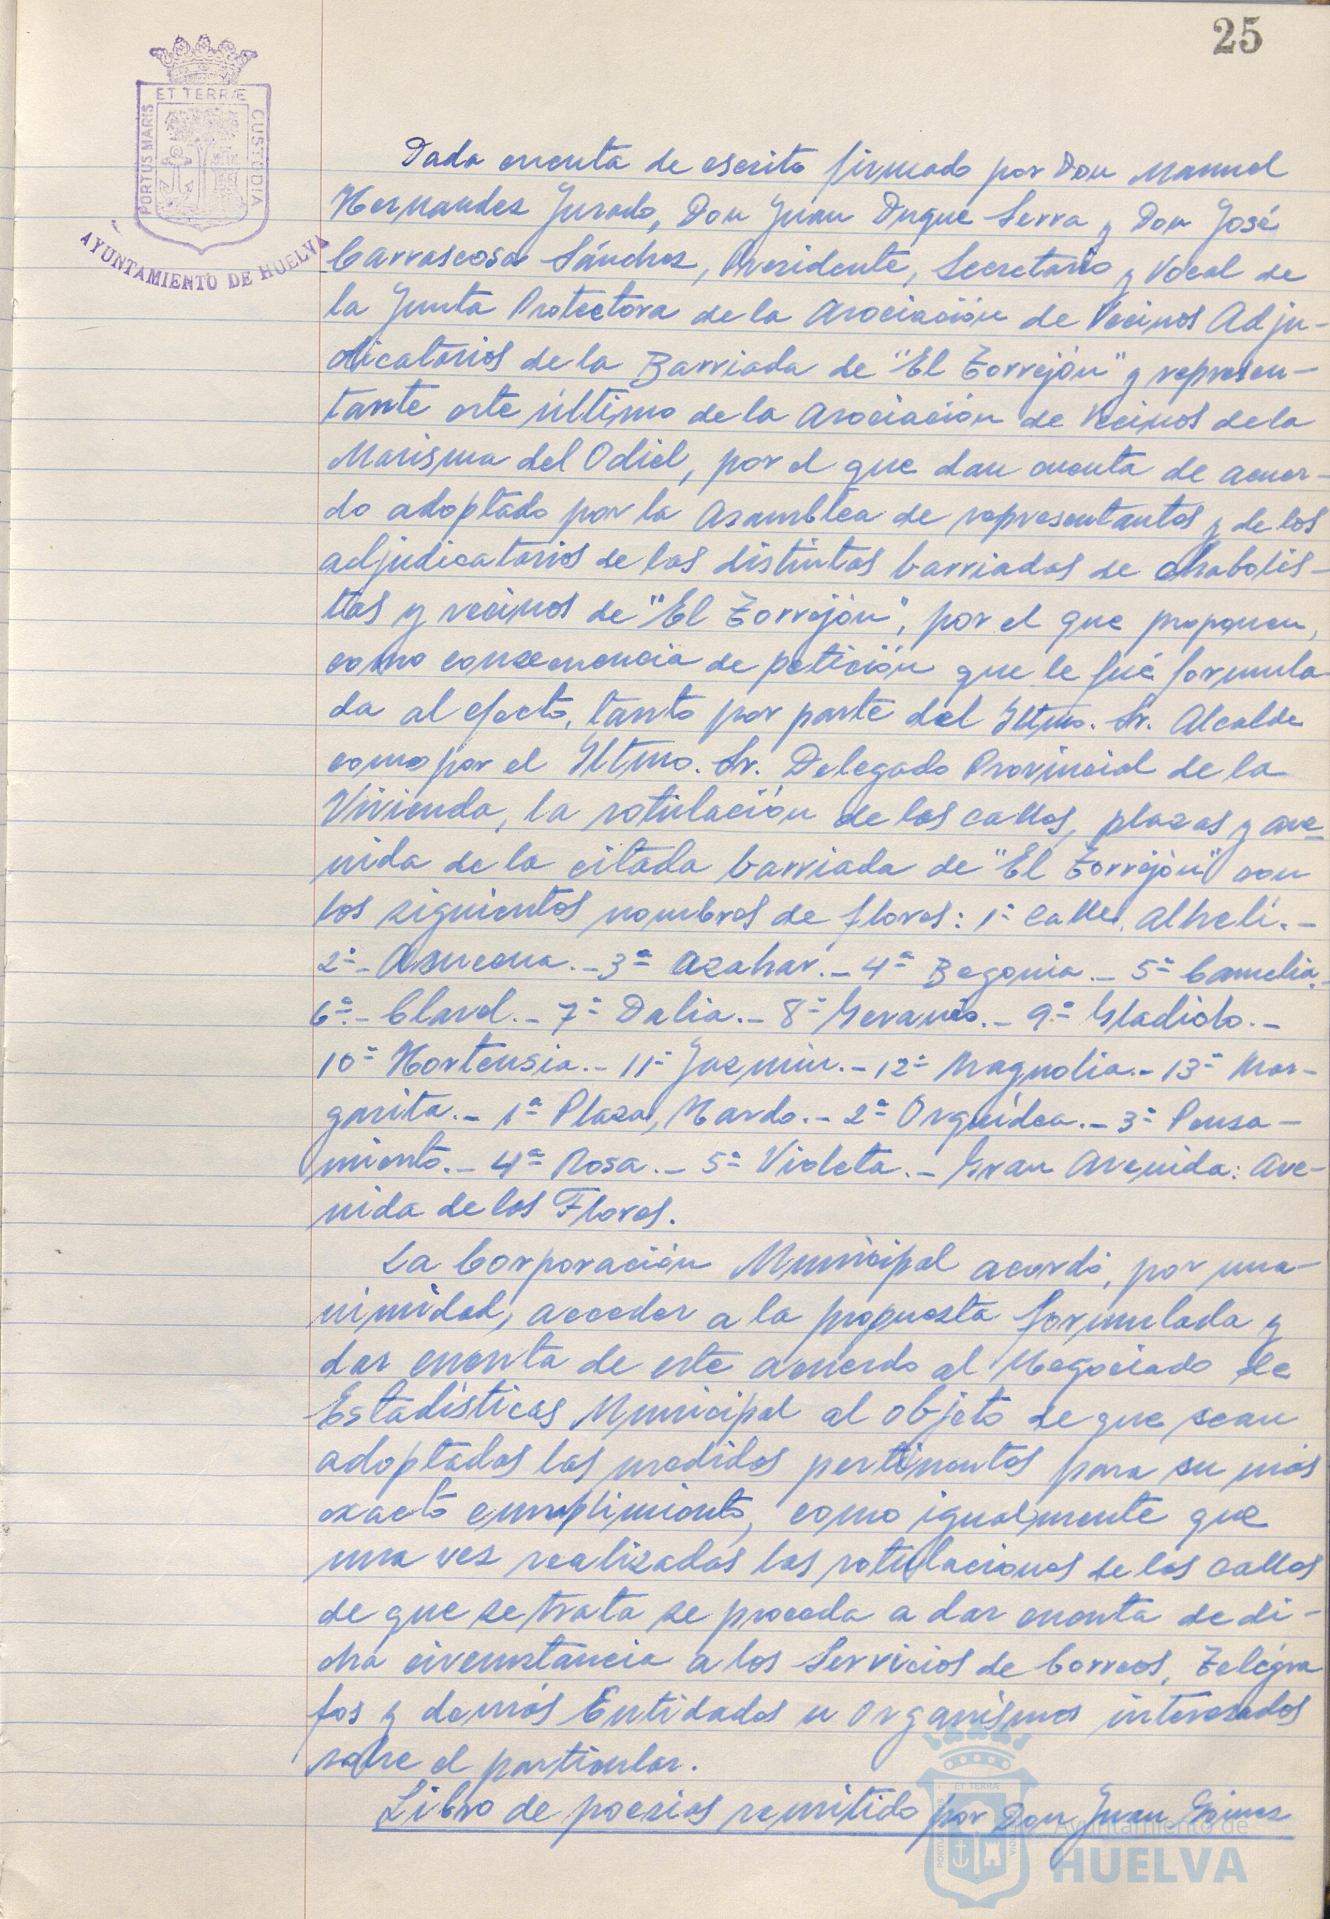 25
ET TERRÆ
PORTUS MARIS
CUSTODIA
AYUNTAMIENTO DE HUELVA
Dada cuenta de escrito firmado por Don Manuel
Hernandez Jurado, Don Juan Duque Serra y Don José
Carrascosa Sánchez, Presidente, Secretario y Vocal de
la Junta Protectora de la Asociación de Vecinos Adju-
dicatarios de la Barriada de "El Torrejón" y represen-
tante este último de la Asociación de Vecinos de la
Marisma del Odiel, por el que dan cuenta de acuer-
do adoptado por la Asamblea de representantes y de los
adjudicatarios de las distintas barriadas de chabolis-
tas y vecinos de "El Torrejón", por el que proponen,
como consecuencia de petición que le fué formula-
da al efecto, tanto por parte del Iltmo. Sr. Alcalde
como por el Iltmo. Sr. Delegado Provincial de la
Vivienda, la rotulación de las calles, plazas y ave-
nida de la citada barriada de "El Torrejón" con
los siguientes nombres de flores: 1ª Calle, Alhelí.-
2ª- Azucena.- 3ª Azahar.- 4ª Begonia.- 5ª Camelia.-
6ª.- Clavel.- 7ª Dalia.- 8ª Geranio.- 9ª Gladiolo.-
10ª Hortensia.- 11ª Jazmín.- 12ª Magnolia.- 13ª Mar-
garita.- 1ª Plaza, Nardo.- 2ª Orquídea.- 3ª Pensa-
miento.- 4ª Rosa.- 5ª Violeta.- Gran Avenida: Ave-
nida de las Flores.
La Corporación Municipal acordó, por una-
nimidad, acceder a la propuesta formulada y
dar cuenta de este acuerdo al Negociado de
Estadísticas Municipal al objeto de que sean
adoptadas las medidas pertinentes para su más
exacto cumplimiento, como igualmente que
una vez realizadas las rotulaciones de las calles
de que se trata se proceda a dar cuenta de di-
cha circunstancia a los Servicios de Correos, Telégra
fos y demás Entidades u Organismos interesados
sobre el particular.
Libro de poesias remitido por Don Juan Gómez
Ayuntamiento de
HUELVA